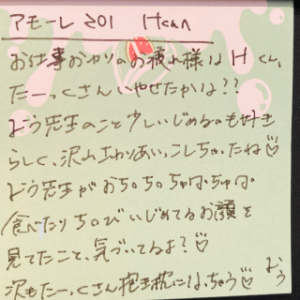 アモーレ 201 Hくん
お仕事おわりのお疲れ様はHくん、
たーっくさんいやせたかな??
よう先生のこと少しいじめるのも好き
らしく、沢山さわりあいっこしちゃったね♡
よう先生がおち〇ち〇ちゅぱちゅぱ
食べたりち〇びいじめてるお顔を
見てたこと、気づいてるよ?♡
次もたーっくさん抱き枕になっちゃう♡ よう